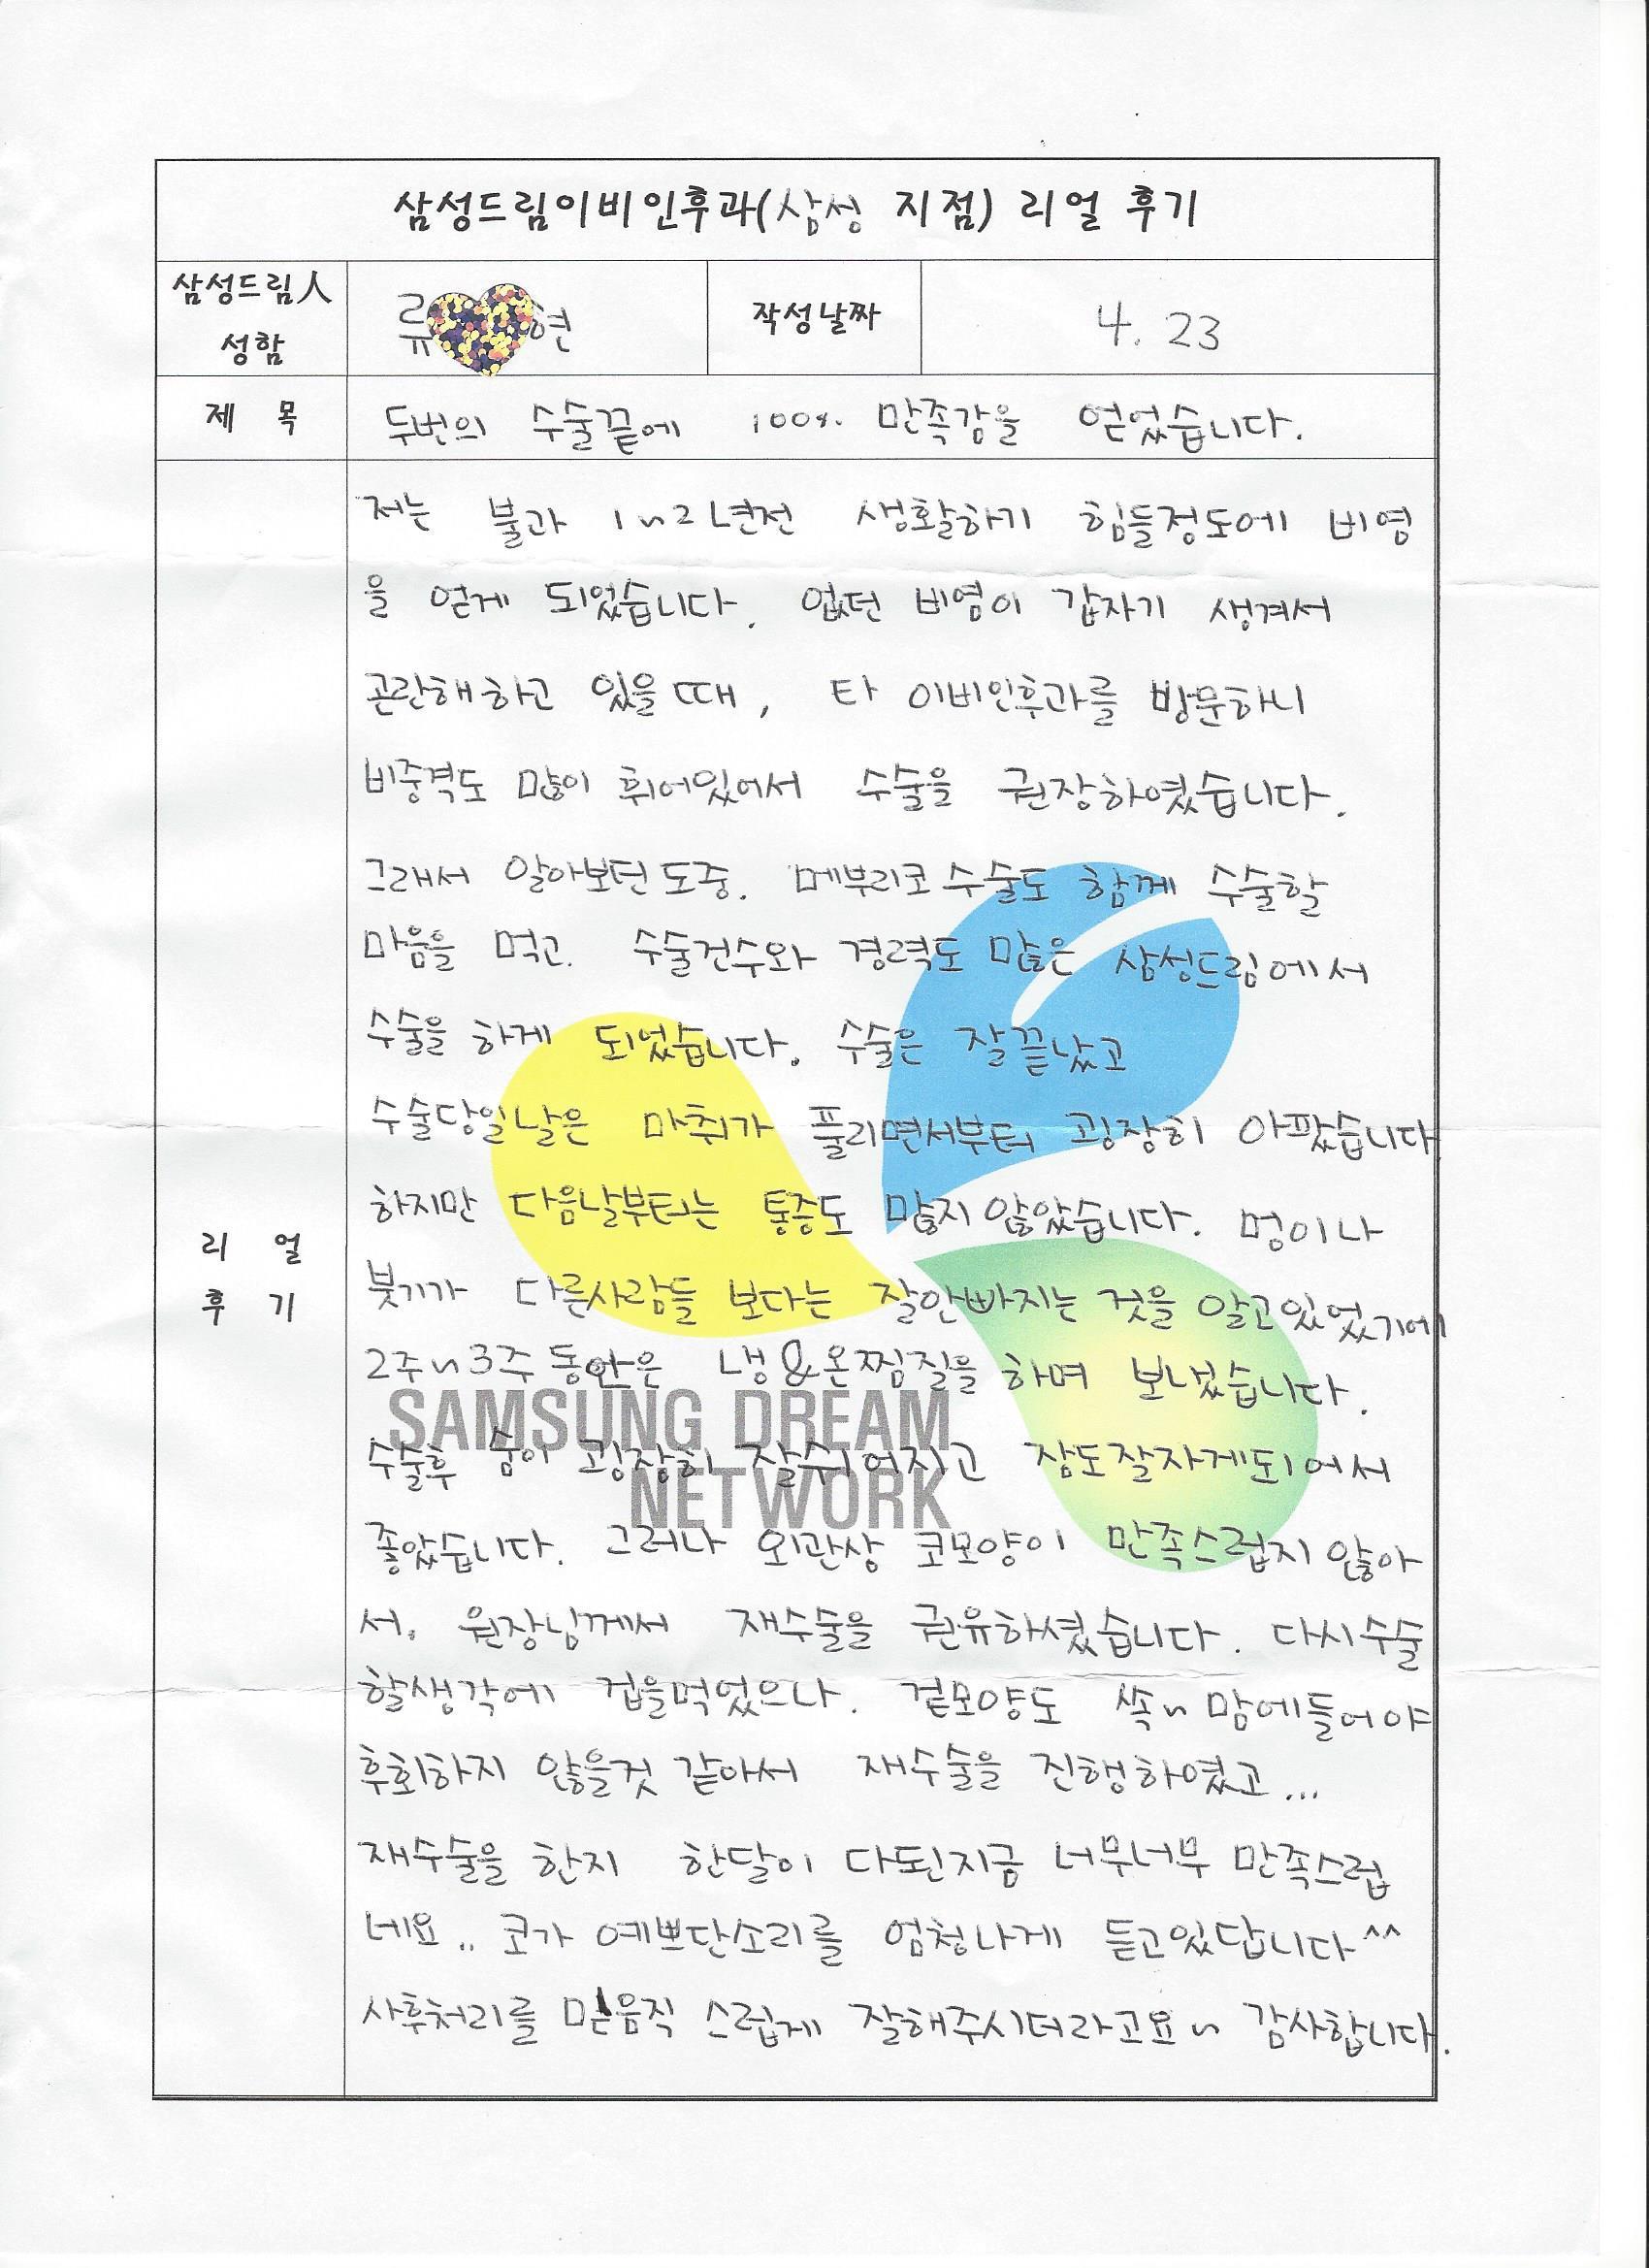 삼성드림이비인후과(삼성 지점) 리얼 후기
삼성드림人
성함
류 현
작성날짜
4. 23
제 목
두번의 수술끝에 100% 만족감을 얻었습니다.
저는 불과 1~2년전 생활하기 힘들정도에 비염
을 얻게 되었습니다. 없던 비염이 갑자기 생겨서
곤란해하고 있을때, 타 이비인후과를 방문하니
비중격도 많이 휘어있어서 수술을 권장하였습니다.
그래서 알아보던도중. 메부리코수술도 함께 수술할
마음을 먹고. 수술건수와 경력도 많은 삼성드림에서
수술을 하게 되었습니다. 수술은 잘끝났고
수술당일날은 마취가 풀리면서부터 굉장히 아팠습니다
하지만 다음날부터는 통증도 많지않았습니다. 멍이나
붓기가 다른사람들 보다는 잘안빠지는 것을 알고있었기에
2주~3주동안은 냉&온찜질을 하며 보냈습니다.
수술후 숨이 굉장히 잘쉬어지고 잠도잘자게되어서
좋았습니다. 그러나 외관상 코모양이 만족스럽지않아
서. 원장님께서 재수술을 권유하셨습니다. 다시수술
할생각에 겁을먹었으나. 겉모양도 쏙~맘에들어야
후회하지 않을것 같아서 재수술을 진행하였고...
재수술을 한지 한달이 다된지금 너무너무 만족스럽
네요.. 코가 예쁘단소리를 엄청나게 듣고있답니다^^
사후처리를 믿음직 스럽게 잘해주시더라고요~ 감사합니다.
리 얼
후 기
SAMSUNG DREAM
NETWORK